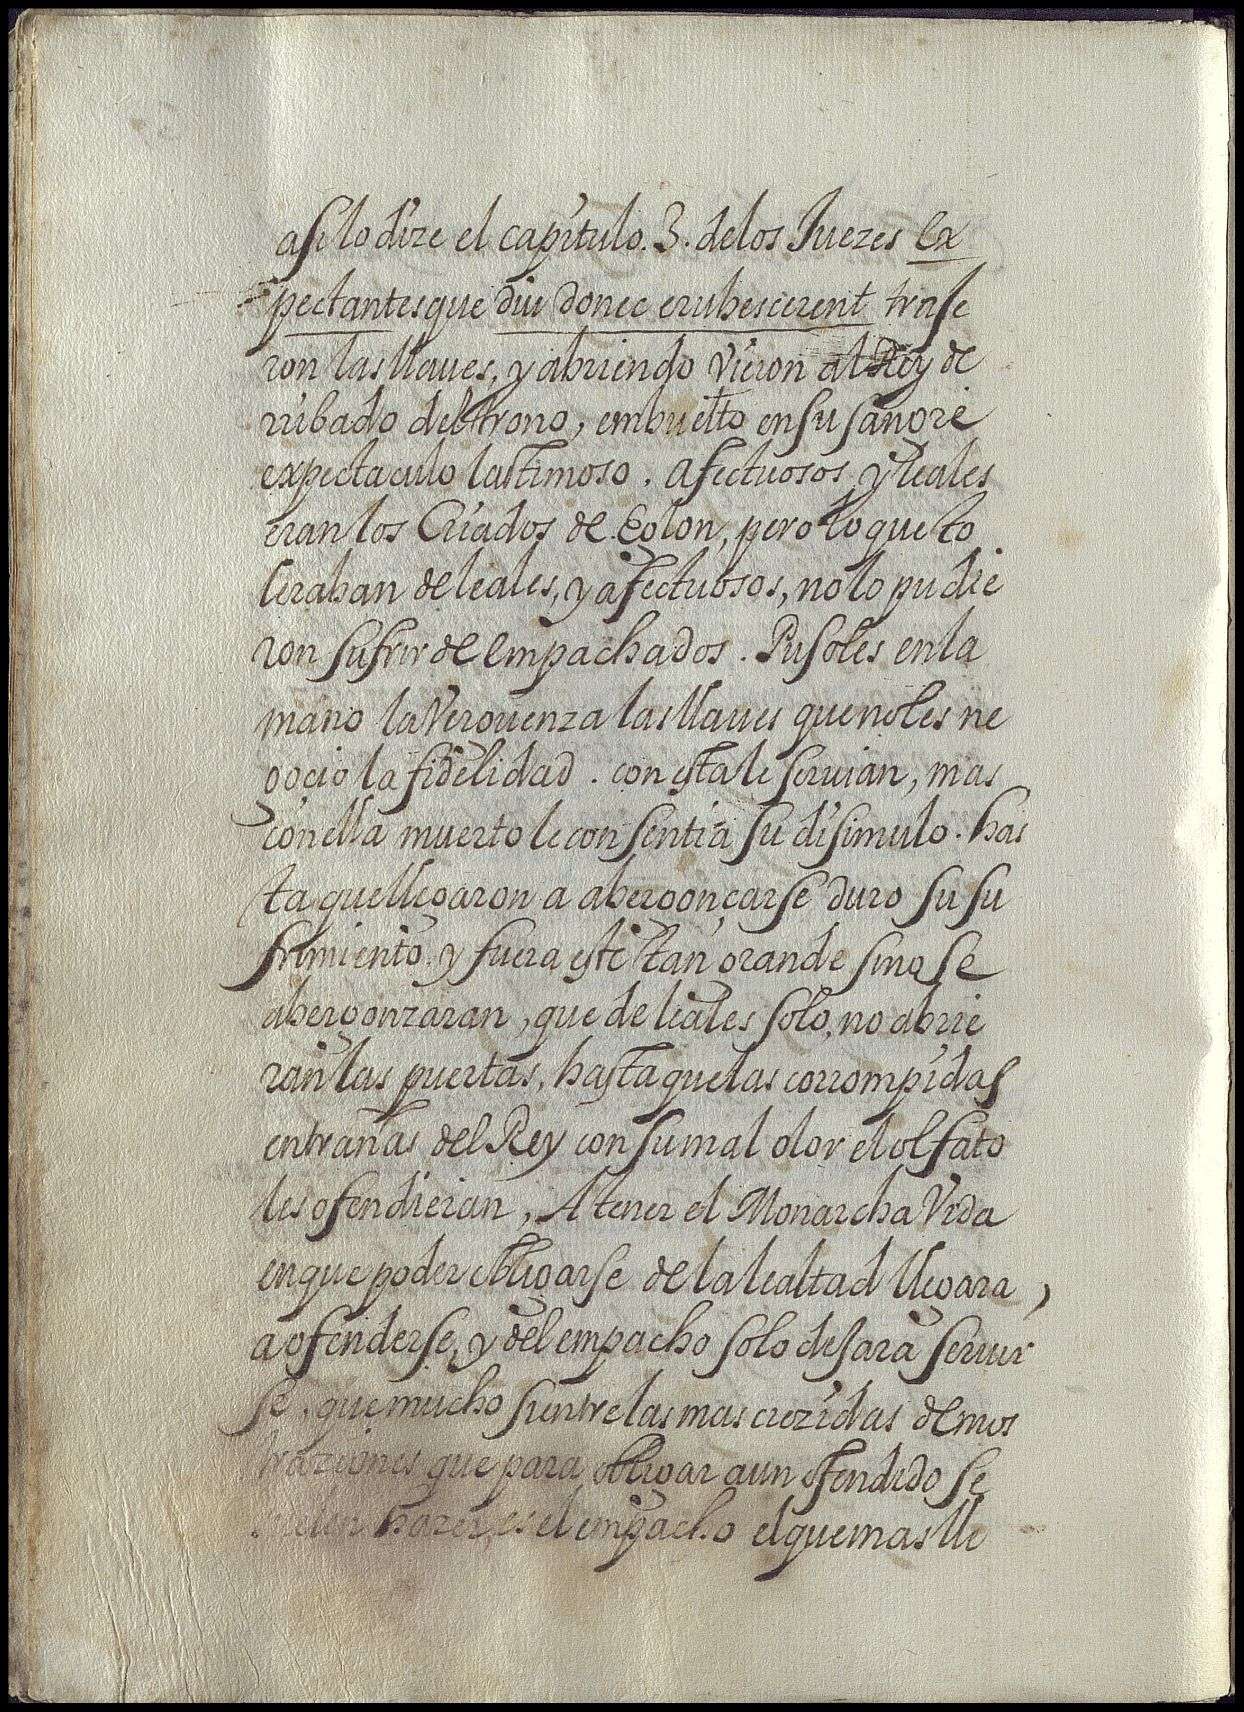 asilo dize el capitulo. 3. delos Juezes Ex
pectantesque diu donec erubescerent traje
ron las llaues, y abriendo vieron al Rey de
rribado del trono, embuelto en su sangre
expectaculo lastimoso. Afectuosos, y leales
eran los Criados de Eglon, pero lo que to
leraban de leales, y afectuosos, no lo pudie
ron sufrir de empachados. Pusoles en la
mano la verguenza las llaues que no les ne
gocio la fidelidad. con esta le seruian, mas
con ella muerto le consentia su disimulo. has
ta que llegaron a abergonçarse duro su su
frimiento. y fuera este tan grande sino se
abergonzaran, que de leales solo, no abrie
ran las puertas, hasta que las corrompidas
entrañas del Rey con su mal olor el olfato
les ofendieran, A tener el Monarcha vida
en que poder obligarse de la lealtad llegara,
a ofenderse, y del empacho solo dejara seruir
se, que mucho si entre las mas crezidas demos
traziones que para obligar a un ofendido se
hazer, es el empacho el que mas lle